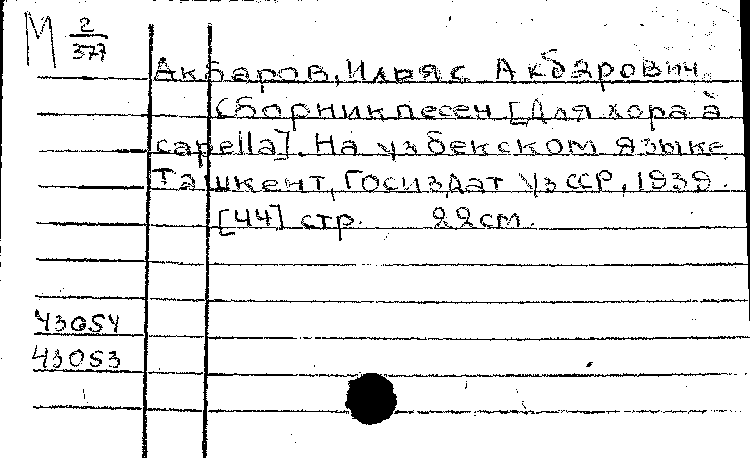 М 2/377
Акбаров, Ильяс Акбарович.
Сборник песен [Для хора à
capella]. На узбекском языке
Ташкент, Госиздат УзССР, 1939.
[44] стр. 22см.
43054
43053